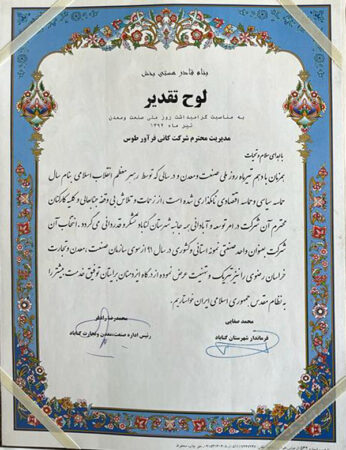 بنام قادر هستی بخش
لوح تقدیر
به مناسبت گرامیداشت روز ملی صنعت ومعدن
تیر ماه ۱۳۹۲
مدیریت محترم شرکت کانی فرآور طوس
با اهدای سلام و تحیات
همزمان با دهم تیرماه روز ملی صنعت و معدن و در سالی که توسط رهبر معظم انقلاب اسلامی بنام سال
حماسه سیاسی و حماسه اقتصادی نامگذاری شده است ، از زحمات و تلاش بی وقفه جنابعالی و کلیه کارکنان
محترم آن شرکت در امر توسعه و آبادانی همه جانبه شهرستان گناباد تشکر و قدردانی می گردد . انتخاب آن
شرکت بعنوان واحد صنعتی نمونه استانی و کشوری در سال ۹۱ از سوی سازمان صنعت ، معدن و تجارت
خراسان رضوی را نیز تبریک و تهنیت عرض نموده از درگاه ایزدمنان برایتان توفیق خدمت بیشتر را
به نظام مقدس جمهوری اسلامی ایران خواستاریم .
محمد صفایی
فرماندار شهرستان گناباد
محمدرضا
رئیس اداره صنعت،معدن وتجارت گناباد